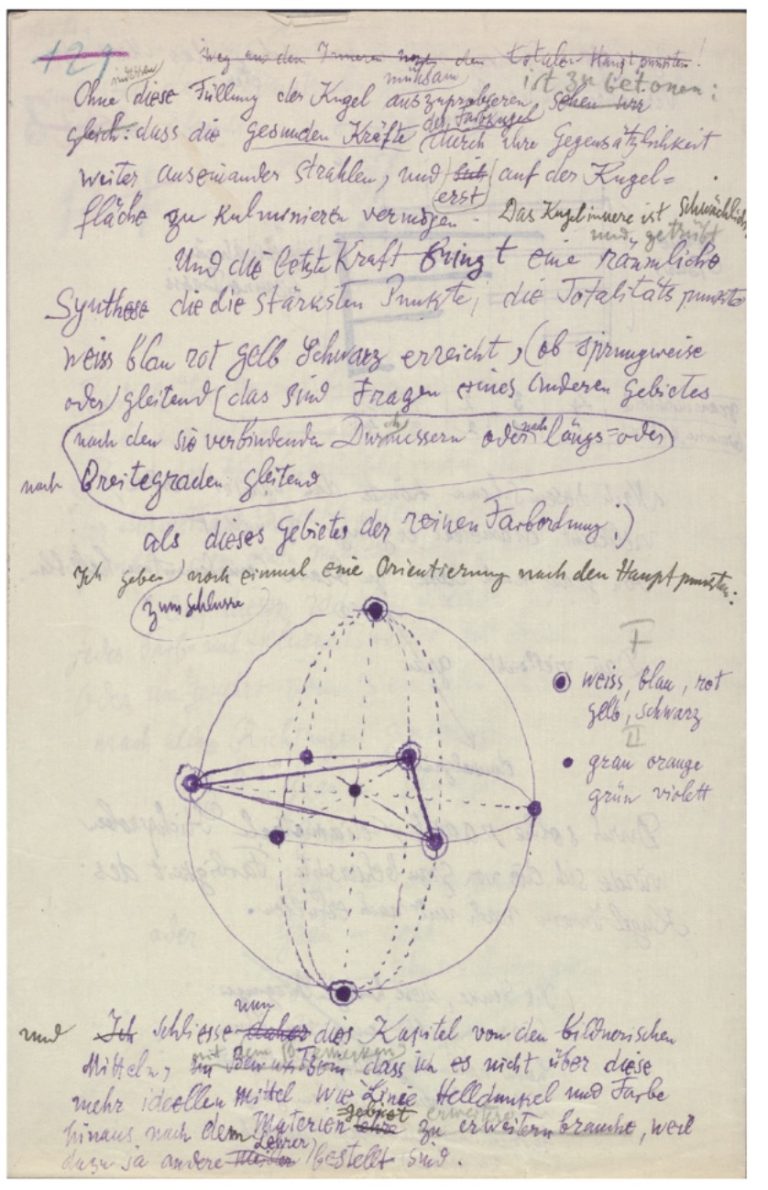 129
weg aus dem Inneren nach den totalen Hauptpunkten!
müssen mühsam ist zu betonen:
Ohne diese Füllung der Kugel auszuprobieren sehen wir
gleich: dass die gesunden Kräfte der Farbkugel durch ihre Gegensätzlichkeit
weiter auseinander strahlen, und sich erst auf der Kugel=
fläche zu kulminieren vermögen. Das Kugelinnere ist schwächlich
und getrübt
Und die letzte Kraft bringt eine räumliche
Synthese die die stärksten Punkte, die Totalitätspunkte
weiss blau rot gelb Schwarz erreicht, (ob sprungweise
oder gleitend das sind Fragen eines anderen Gebietes
nach den sie verbindenden Durchmessern oder nach längs= oder
nach Breitegraden gleitend
als dieses Gebietes der reinen Farbordnung.)
Ich gebe noch einmal eine Orientierung nach den Hauptpunkten:
zum Schlusse
I
weiss, blau, rot
gelb, schwarz
II
grau orange
grün violett
nun
und Ich schliesse daher dies Kapitel von den bildnerischen
mit dem Bemerken
Mitteln, im Bewusstsein dass ich es nicht über diese
mehr ideellen Mittel wie Linie Helldunkel und Farbe
gebiet erweitern
hinaus nach dem Materien zu erweitern brauche, weil
Lehrer
dazu ja andere Meister bestellt sind.